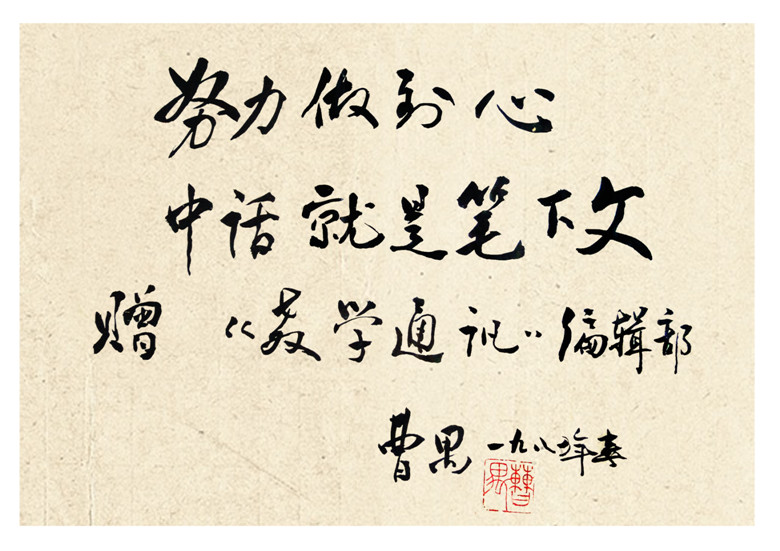 努力做到心
中话就是笔下文
赠《教学通讯》编辑部
曹禺 一九八年春
曹禺